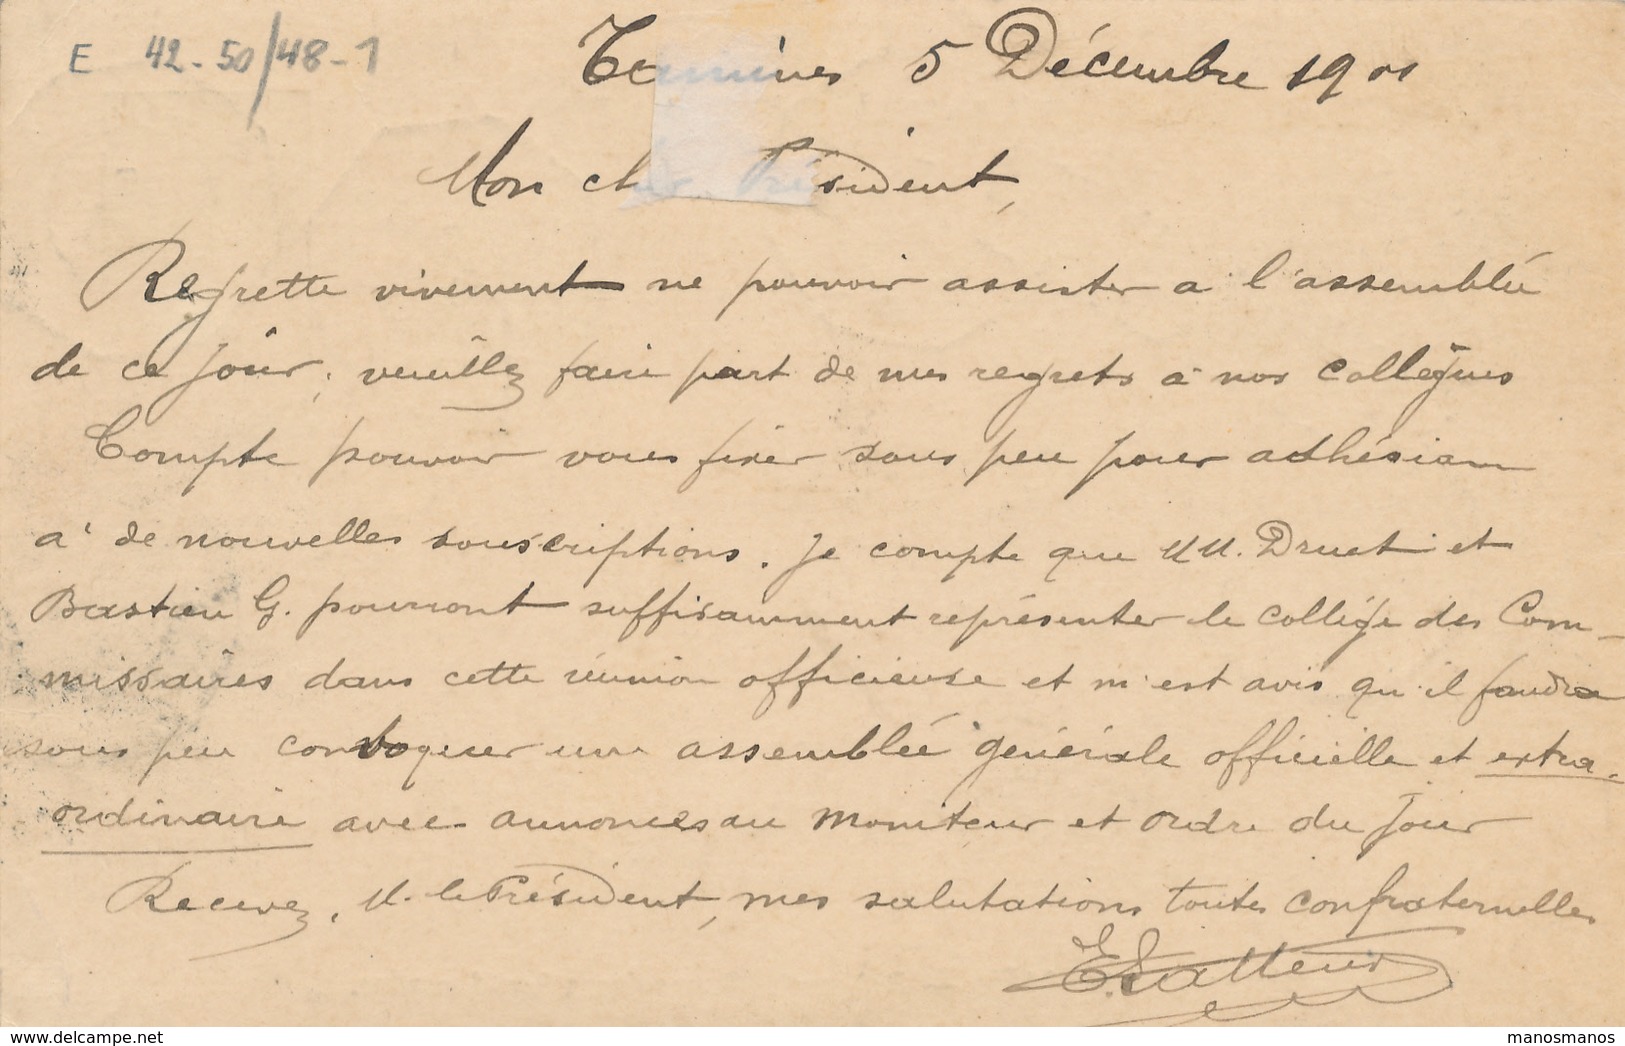 E 42-50/48-1
Tamines 5 Décembre 1901
Mon cher Président,
Regrette vivement ne pouvoir assister a l'assemblée
de ce jour, veuillez faire part de mes regrets à nos collègues
Compte pouvoir vous fixer sous peu pour adhésion
à de nouvelles souscriptions. Je compte que MM. Druet et
Bastien G. pourront suffisamment représenter le collège des Com-
missaires dans cette réunion officieuse et m'est avis qu'il faudra
sous peu convoquer une assemblée générale officielle et extra-
ordinaire avec annonces au Moniteur et ordre du jour
Recevez, M. le Président, mes salutations toutes confraternelles
manosmanos